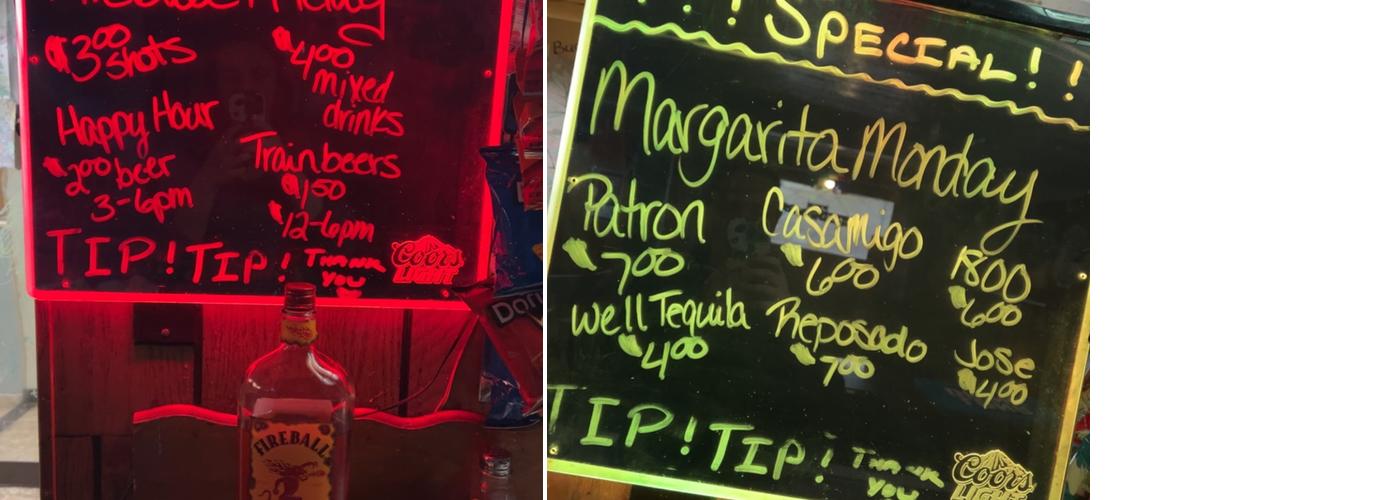 $3.00 shots
$4.00 mixed drinks
Happy Hour
$2.00 beer
3-6pm
Train beers
$1.50
12-6pm
TIP! TIP! THANK YOU
Coors
LIGHT
FIREBALL
! ! SPECIAL! !
Margarita Monday
Patron
$7.00
Casamigo
$6.00
1800
$6.00
Well Tequila
$4.00
Reposado
$7.00
Jose
$4.00
TIP! TIP! THANK YOU
Coors
LIGHT